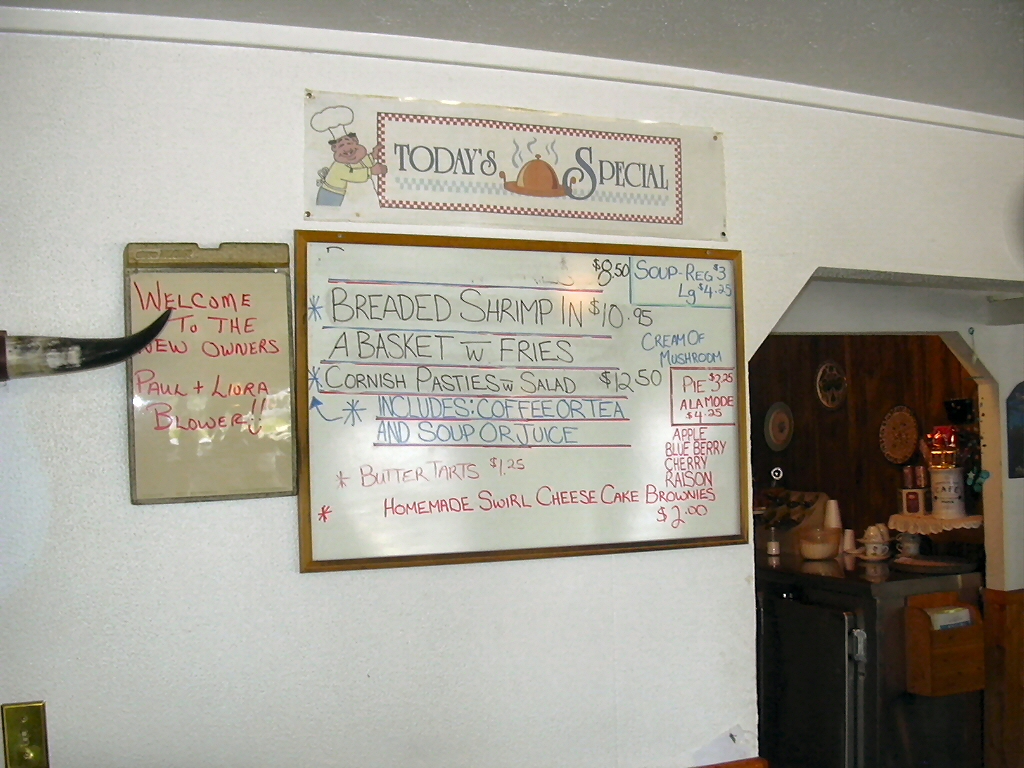 TODAY'S SPECIAL
WELCOME
TO THE
NEW OWNERS
PAUL + LIORA
BLOWER!!
$8.50
SOUP-REG $3
Lg $4.25
* BREADED SHRIMP IN $10.95
A BASKET w FRIES
CREAM OF
MUSHROOM
* CORNISH PASTIES w SALAD $12.50
* INCLUDES: COFFEE OR TEA
AND SOUP OR JUICE
PIE $3.25
ALAMODE
$4.25
APPLE
BLUE BERRY
CHERRY
RAISON
* BUTTER TARTS $1.25
* HOMEMADE SWIRL CHEESE CAKE BROWNIES
$2.00
CAFÉ